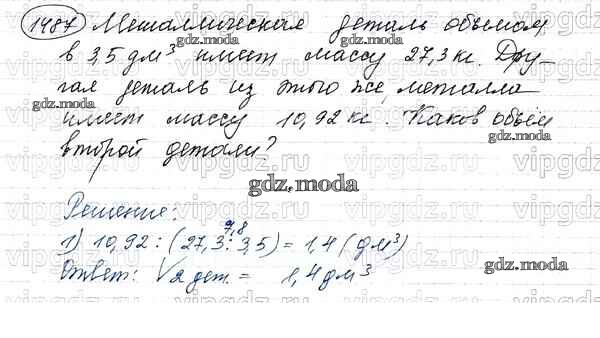 1487 Металлическая деталь объемом
в 3,5 дм³ имеет массу 27,3 кг. Дру-
гая деталь из этого же металла
имеет массу 10,92 кг. Каков объём
второй детали?
gdz.moda
Решение:
7,8
1) 10,92 : (27,3 : 3,5) = 1,4 (дм³)
Ответ: V 2 дет. = 1,4 дм³